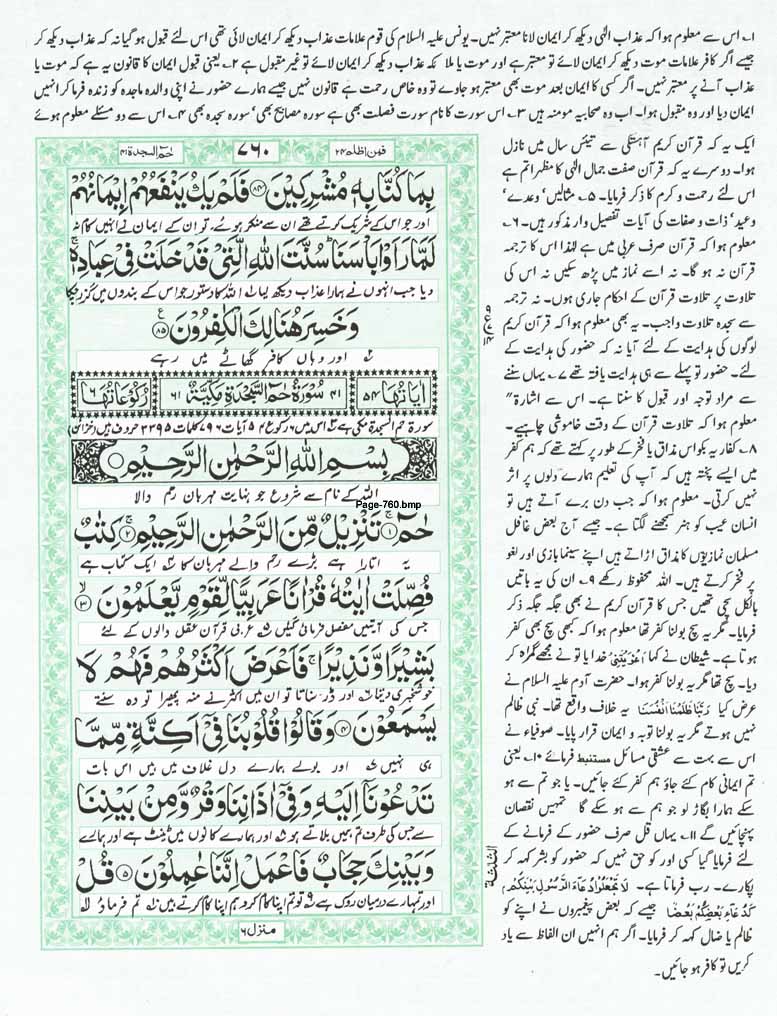 ۱۔ اس سے معلوم ہوا کہ عذاب الٰہی دیکھ کر ایمان لانا معتبر نہیں۔ یونس علیہ السلام کی قوم علامات عذاب دیکھ کر ایمان لائی تھی اس لئے قبول ہو گیا نہ کہ عذاب دیکھ کر
جیسے اگر کافر علامات موت دیکھ کر ایمان لائے تو معتبر ہے اور موت یا ملائکہ عذاب دیکھ کر ایمان لائے تو غیر مقبول ہے ۲۔ یعنی قبول ایمان کا قانون یہ ہے کہ موت یا
عذاب آنے پر معتبر نہیں۔ اگر کسی کا ایمان بعد موت بھی معتبر ہو جاوے تو وہ خاص رحمت ہے قانون نہیں جیسے ہمارے حضور نے اپنی والدہ ماجدہ کو زندہ فرما کر انہیں
ایمان دیا اور وہ مقبول ہوا۔ اب وہ صحابیہ مومنہ ہیں ۳۔ اس سورت کا نام سورت فصلت بھی ہے سورہ مصابیح بھی، سورہ سجدہ بھی ۴۔ اس سے دو مسئلے معلوم ہوئے
ایک یہ کہ قرآن کریم آہستگی سے تئیس سال میں نازل
ہوا۔ دوسرے یہ کہ قرآن صفت جمال الٰہی کا مظہر اتم ہے
اس لئے رحمت و کرم کا ذکر فرمایا۔ ۵۔ مثالیں، وعدے،
وعید، ذات و صفات کی آیات تفصیل وار مذکور ہیں۔ ۶۔
معلوم ہوا کہ قرآن صرف عربی میں ہے لہٰذا اس کا ترجمہ
قرآن نہ ہو گا۔ نہ اسے نماز میں پڑھ سکیں نہ اس کی
تلاوت پر تلاوت قرآن کے احکام جاری ہوں۔ نہ ترجمہ
سے سجدہ تلاوت واجب۔ یہ بھی معلوم ہوا کہ قرآن کریم
لوگوں کی ہدایت کے لئے آیا نہ کہ حضور کی ہدایت کے
لئے۔ حضور تو پہلے سے ہی ہدایت یافتہ تھے ۷۔ یہاں سننے
سے مراد توجہ اور قبول کا سننا ہے۔ اس سے اشارۃً
معلوم ہوا کہ تلاوت قرآن کے وقت خاموشی چاہیے۔
۸۔ کفار یہ بکواس مذاق یا فخر کے طور پر کہتے تھے کہ ہم کفر
میں ایسے پختہ ہیں کہ آپ کی تعلیم ہمارے دلوں پر اثر
نہیں کرتی۔ معلوم ہوا کہ جب دن برے آتے ہیں تو
انسان عیب کو ہنر سمجھنے لگتا ہے۔ جیسے آج بعض غافل
مسلمان نمازیوں کا مذاق اڑاتے ہیں اپنے سینما بازی اور لغو
پر فخر کرتے ہیں۔ اللہ محفوظ رکھے ۹۔ ان کی یہ باتیں
بالکل سچی تھیں جس کا قرآن کریم نے بھی جگہ جگہ ذکر
فرمایا۔ مگر یہ سچ بولنا کفر تھا معلوم ہوا کہ کبھی سچ بھی کفر
ہوتا ہے۔ شیطان نے کہا اَغْوَیْتَنِیْ خدایا تو نے مجھے گمراہ کر
دیا۔ سچ تھا مگر یہ بولنا کفر ہوا۔ حضرت آدم علیہ السلام نے
عرض کیا رَبَّنَا ظَلَمْنَا اَنْفُسَنَا یہ خلاف واقع تھا۔ نبی ظالم
نہیں ہوتے مگر یہ بولنا توبہ و ایمان قرار پایا۔ صوفیاء نے
اس سے بہت سے عشقی مسائل مستنبط فرمائے ۱۰۔ یعنی
تم ایمانی کام کئے جاؤ ہم کفر کئے جائیں۔ یا جو تم سے ہو
سکے ہمارا بگاڑ لو جو ہم سے ہو سکے گا تمہیں نقصان
پہنچائیں گے ۱۱۔ یہاں قل صرف حضور کے فرمانے کے
لئے فرمایا گیا کسی اور کو حق نہیں کہ حضور کو بشر کہہ کر
پکارے۔ رب فرماتا ہے۔ لَا تَجْعَلُوْا دُعَآءَ الرَّسُوْلِ بَیْنَکُمْ
کَدُعَآءِ بَعْضِکُمْ بَعْضًا جیسے کہ بعض پیغمبروں نے اپنے کو
ظالم یا ضال کہہ کر فرمایا۔ اگر ہم انہیں ان الفاظ سے یاد
کریں تو کافر ہو جائیں۔
فمن اظلم ۲۴
۷۶۰
حٰمٓ السجدۃ ۴۱
بِمَا كُنَّا بِهٖ مُشْرِكِیْنَ ﴿۸۴﴾ فَلَمْ یَكُ یَنْفَعُهُمْ اِیْمَانُهُمْ
اور جو اس کے شریک کرتے تھے ان سے منکر ہوئے، تو ان کے ایمان نے انہیں کام نہ
لَمَّا رَاَوْا بَاْسَنَا سُنَّتَ اللّٰهِ الَّتِیْ قَدْ خَلَتْ فِیْ عِبَادِهٖ
دیا جب انہوں نے ہمارا عذاب دیکھ لیا اللہ کا دستور جو اس کے بندوں میں گزر چکا
وَخَسِرَ هُنَالِكَ الْكٰفِرُوْنَ ﴿۸۵﴾
اور وہاں کافر گھاٹے میں رہے
اٰیَاتُهَا ۵۴
۴۱ سُوْرَةُ حٰمٓ السَّجْدَةِ مَكِّیَّةٌ ۶۱
رُكُوْعَاتُهَا ۶
سورۃ حم السجدۃ مکی ہے اس میں ۶ رکوع ۵۴ آیات ۷۹۶ کلمات ۳۳۹۵ حروف ہیں (خزائن)
بِسْمِ اللّٰهِ الرَّحْمٰنِ الرَّحِیْمِ
اللہ کے نام سے شروع جو نہایت مہربان رحم والا
Page-760.bmp
حٰمٓ ﴿۱﴾ تَنْزِیْلٌ مِّنَ الرَّحْمٰنِ الرَّحِیْمِ ﴿۲﴾ كِتٰبٌ
یہ اتارا ہے بڑے رحم والے مہربان کا ایک کتاب ہے
فُصِّلَتْ اٰیٰتُهٗ قُرْاٰنًا عَرَبِیًّا لِّقَوْمٍ یَّعْلَمُوْنَ ﴿۳﴾
جس کی آیتیں مفصل فرمائی گئیں عربی قرآن عقل والوں کے لئے
بَشِیْرًا وَّنَذِیْرًا فَاَعْرَضَ اَكْثَرُهُمْ فَهُمْ لَا
خوشخبری دیتا اور ڈر سناتا تو ان میں اکثر نے منہ پھیرا تو وہ سنتے
یَسْمَعُوْنَ ﴿۴﴾ وَقَالُوْا قُلُوْبُنَا فِیْ اَكِنَّةٍ مِّمَّا
ہی نہیں اور بولے ہمارے دل غلاف میں ہیں اس بات
تَدْعُوْنَاۤ اِلَیْهِ وَفِیْۤ اٰذَانِنَا وَقْرٌ وَّمِنْۢ بَیْنِنَا
سے جس کی طرف تم ہمیں بلاتے ہو اور ہمارے کانوں میں ٹینٹ ہے اور ہمارے
وَبَیْنِكَ حِجَابٌ فَاعْمَلْ اِنَّنَا عٰمِلُوْنَ ﴿۵﴾ قُلْ
اور تمہارے درمیان روک ہے تو تم اپنا کام کرو ہم اپنا کام کرتے ہیں تم فرماؤ
منزل ۶